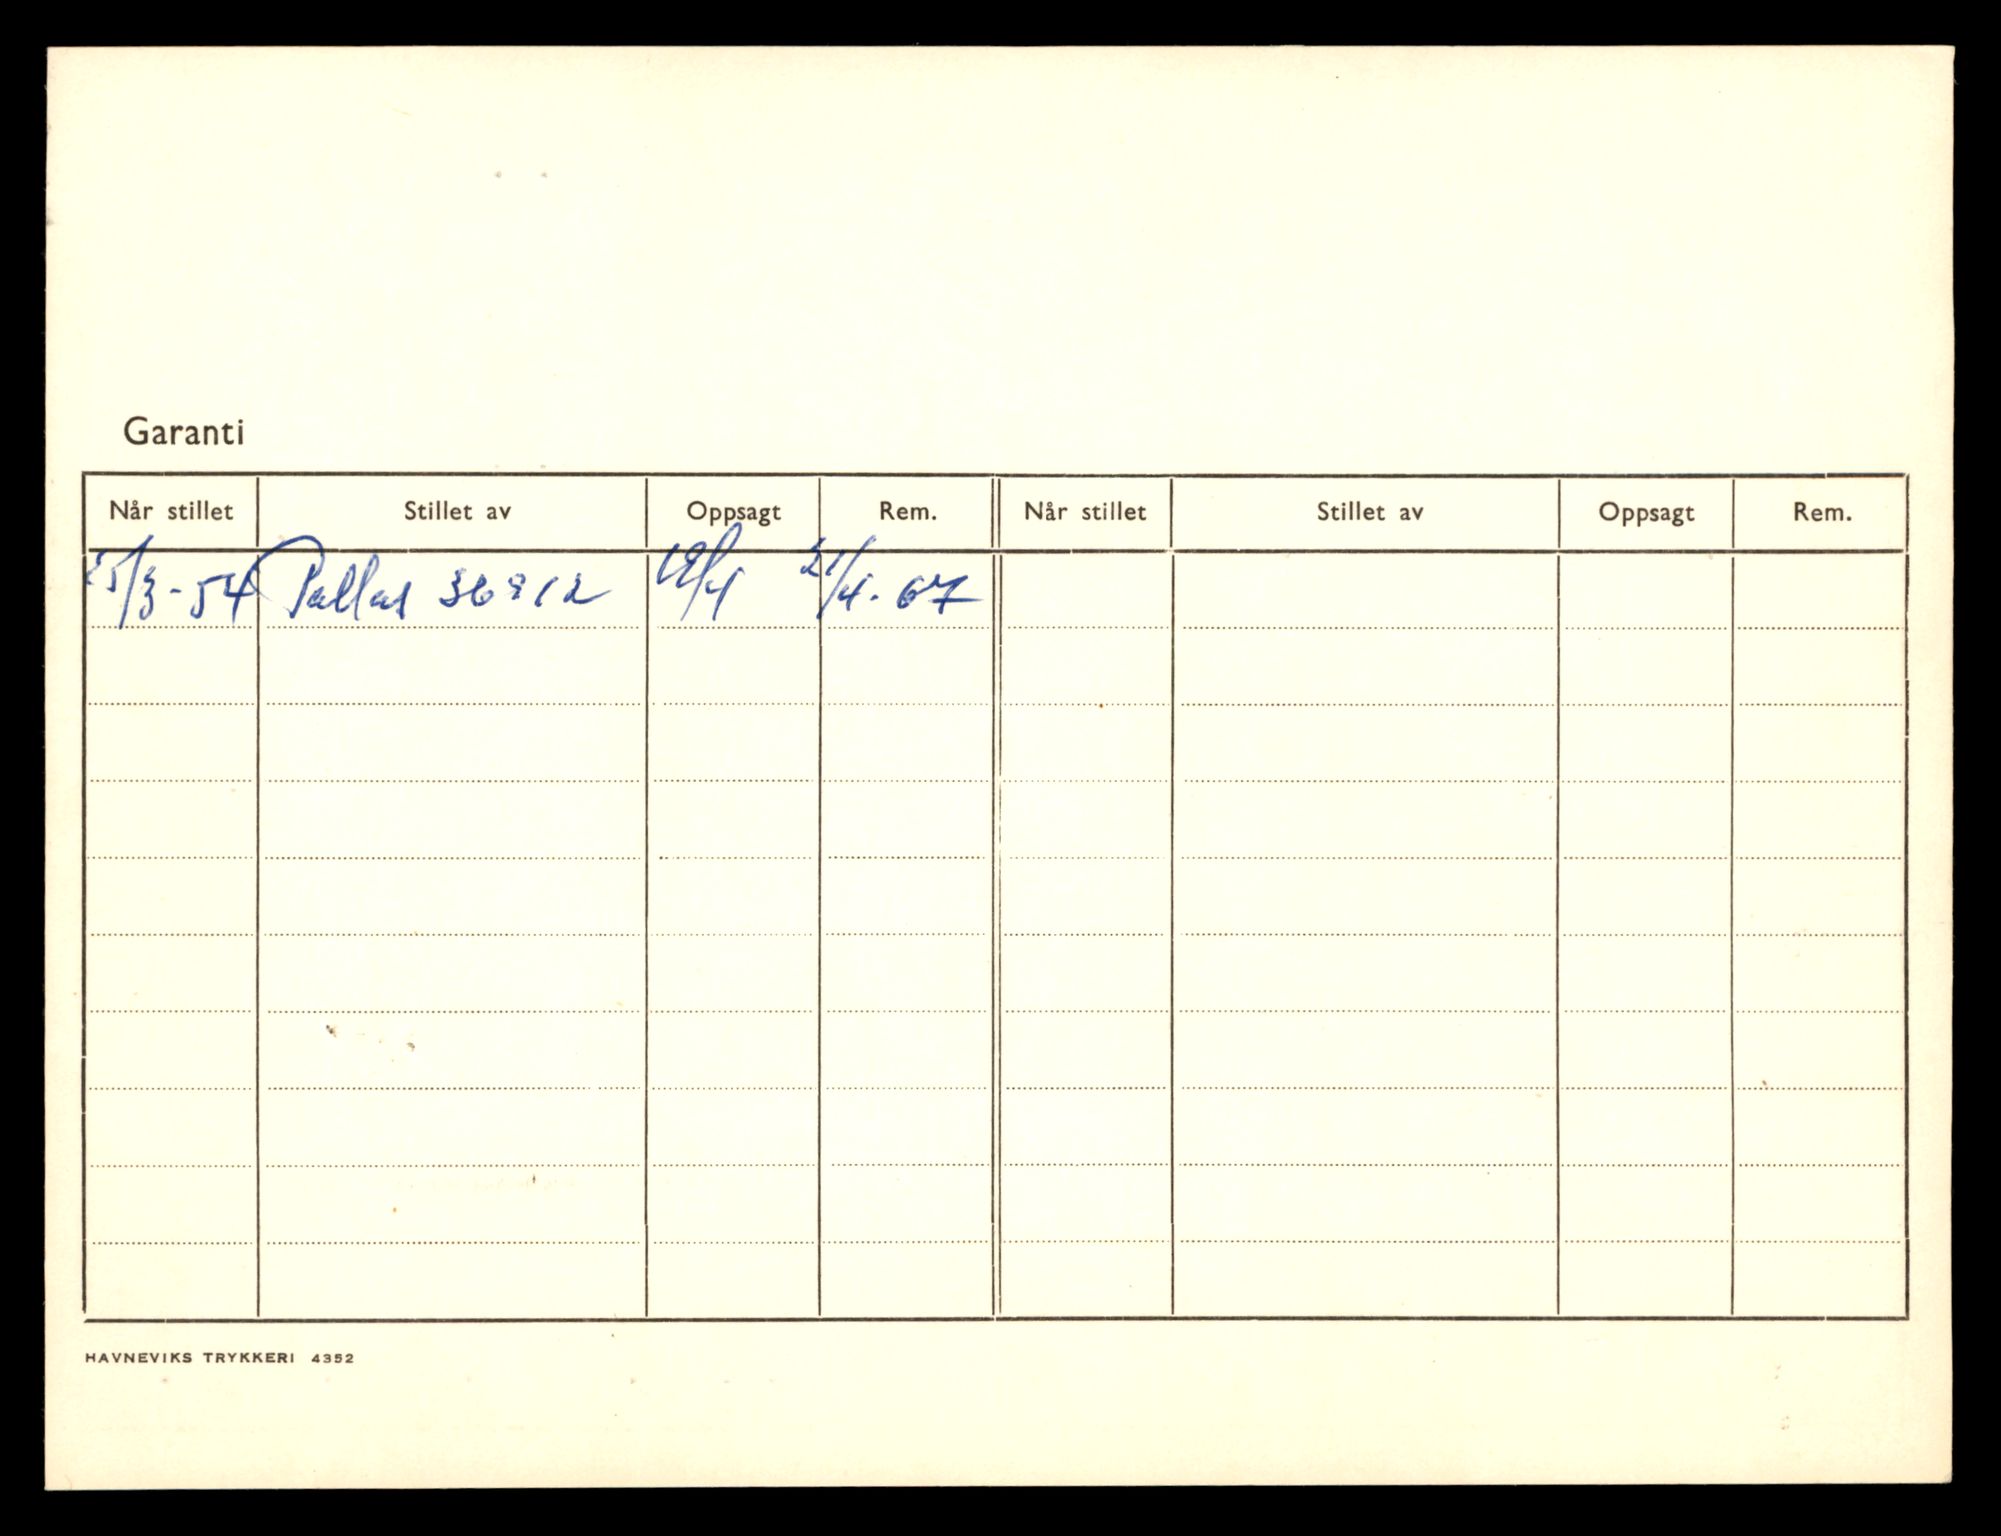 Garanti
Når stillet Stillet av Oppsagt Rem. Når stillet Stillet av Oppsagt Rem.
25/3-54 Pallas 36812 19/4 21/4-67
HAVNEVIKS TRYKKERI 4352